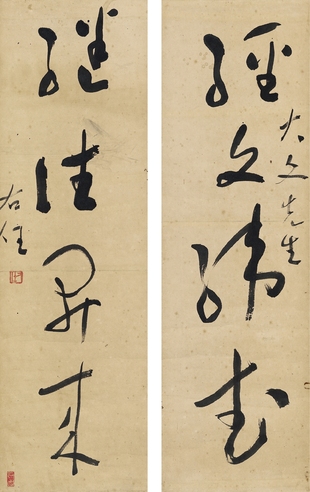 經文緯武
大文先生
繼往開來
右任